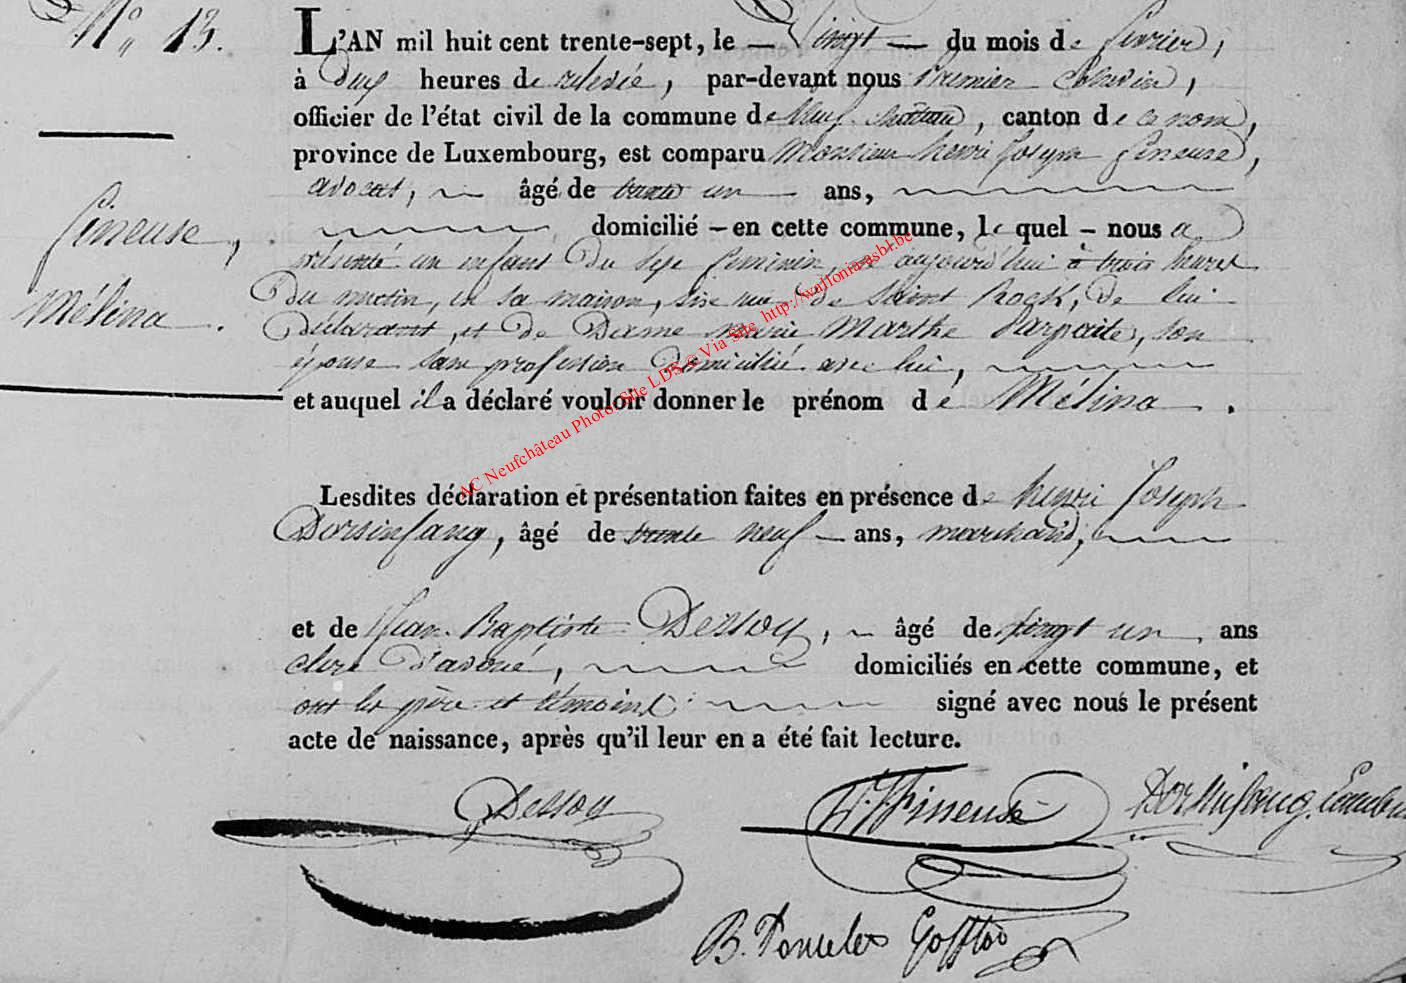 N° 13.
L'AN mil huit cent trente-sept, le — Vingt — du mois de février,
à deux heures de relevée, par-devant nous Premier Echevin,
officier de l'état civil de la commune de Neufchâteau, canton de ce nom,
province de Luxembourg, est comparu Monsieur henri Joseph fineuse,
avocat, âgé de trente un ans,
domicilié – en cette commune, le quel – nous a
fineuse,
Mélina.
présenté un enfant du sexe féminin, né aujourd'hui à trois heures
du matin, en sa maison, sise rue de Saint Roch, de lui
déclarant, et de Dame Marie Marthe Parpaite, son
épouse sans profession domiciliée avec lui,
et auquel il a déclaré vouloir donner le prénom de Mélina.
AC Neufchâteau Photo Site LDS © Via Site http://wallonia-asbl.be
Lesdites déclaration et présentation faites en présence de henri Joseph
Dorsinfang, âgé de trente neuf — ans, marchand,
et de Jean Baptiste Dessoy, âgé de vingt un ans
clerc d'avoué, domiciliés en cette commune, et
ont les père et témoins signé avec nous le présent
acte de naissance, après qu'il leur en a été fait lecture.
Dessoy
H. J. Fineuse
Dorsinfang
B.